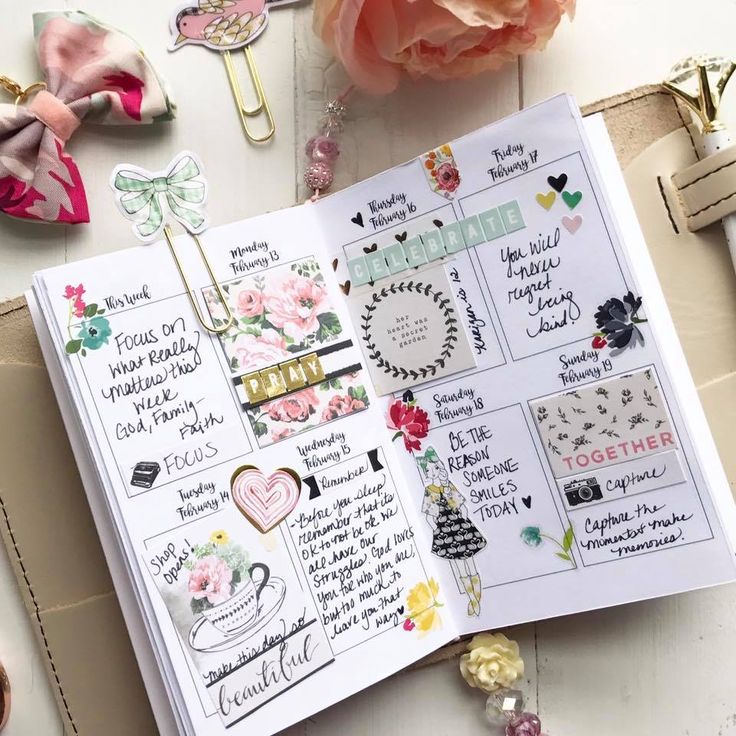 This Week
FOCUS ON
WHAT REALLY
MATTERS THIS
WEEK
GOD, FAMILY-
FAITH
FOCUS
Monday
February 13
PRAY
Tuesday
February 14
Shop
opens!
make this day so
beautiful
Wednesday
February 15
Remember
- Before you sleep
remember that its
ok to not be ok. we
all have our
struggles. God loves
you for who you are,
but too much to
leave you that
way
Thursday
February 16
CELEBRATE
her
heart was
a secret
garden
is 12
Friday
February 17
You will
never
regret
being
kind!
Saturday
February 18
BE THE
REASON
SOMEONE
SMILES
TODAY
Sunday
February 19
TOGETHER
capture
Capture the
moments & make
memories.